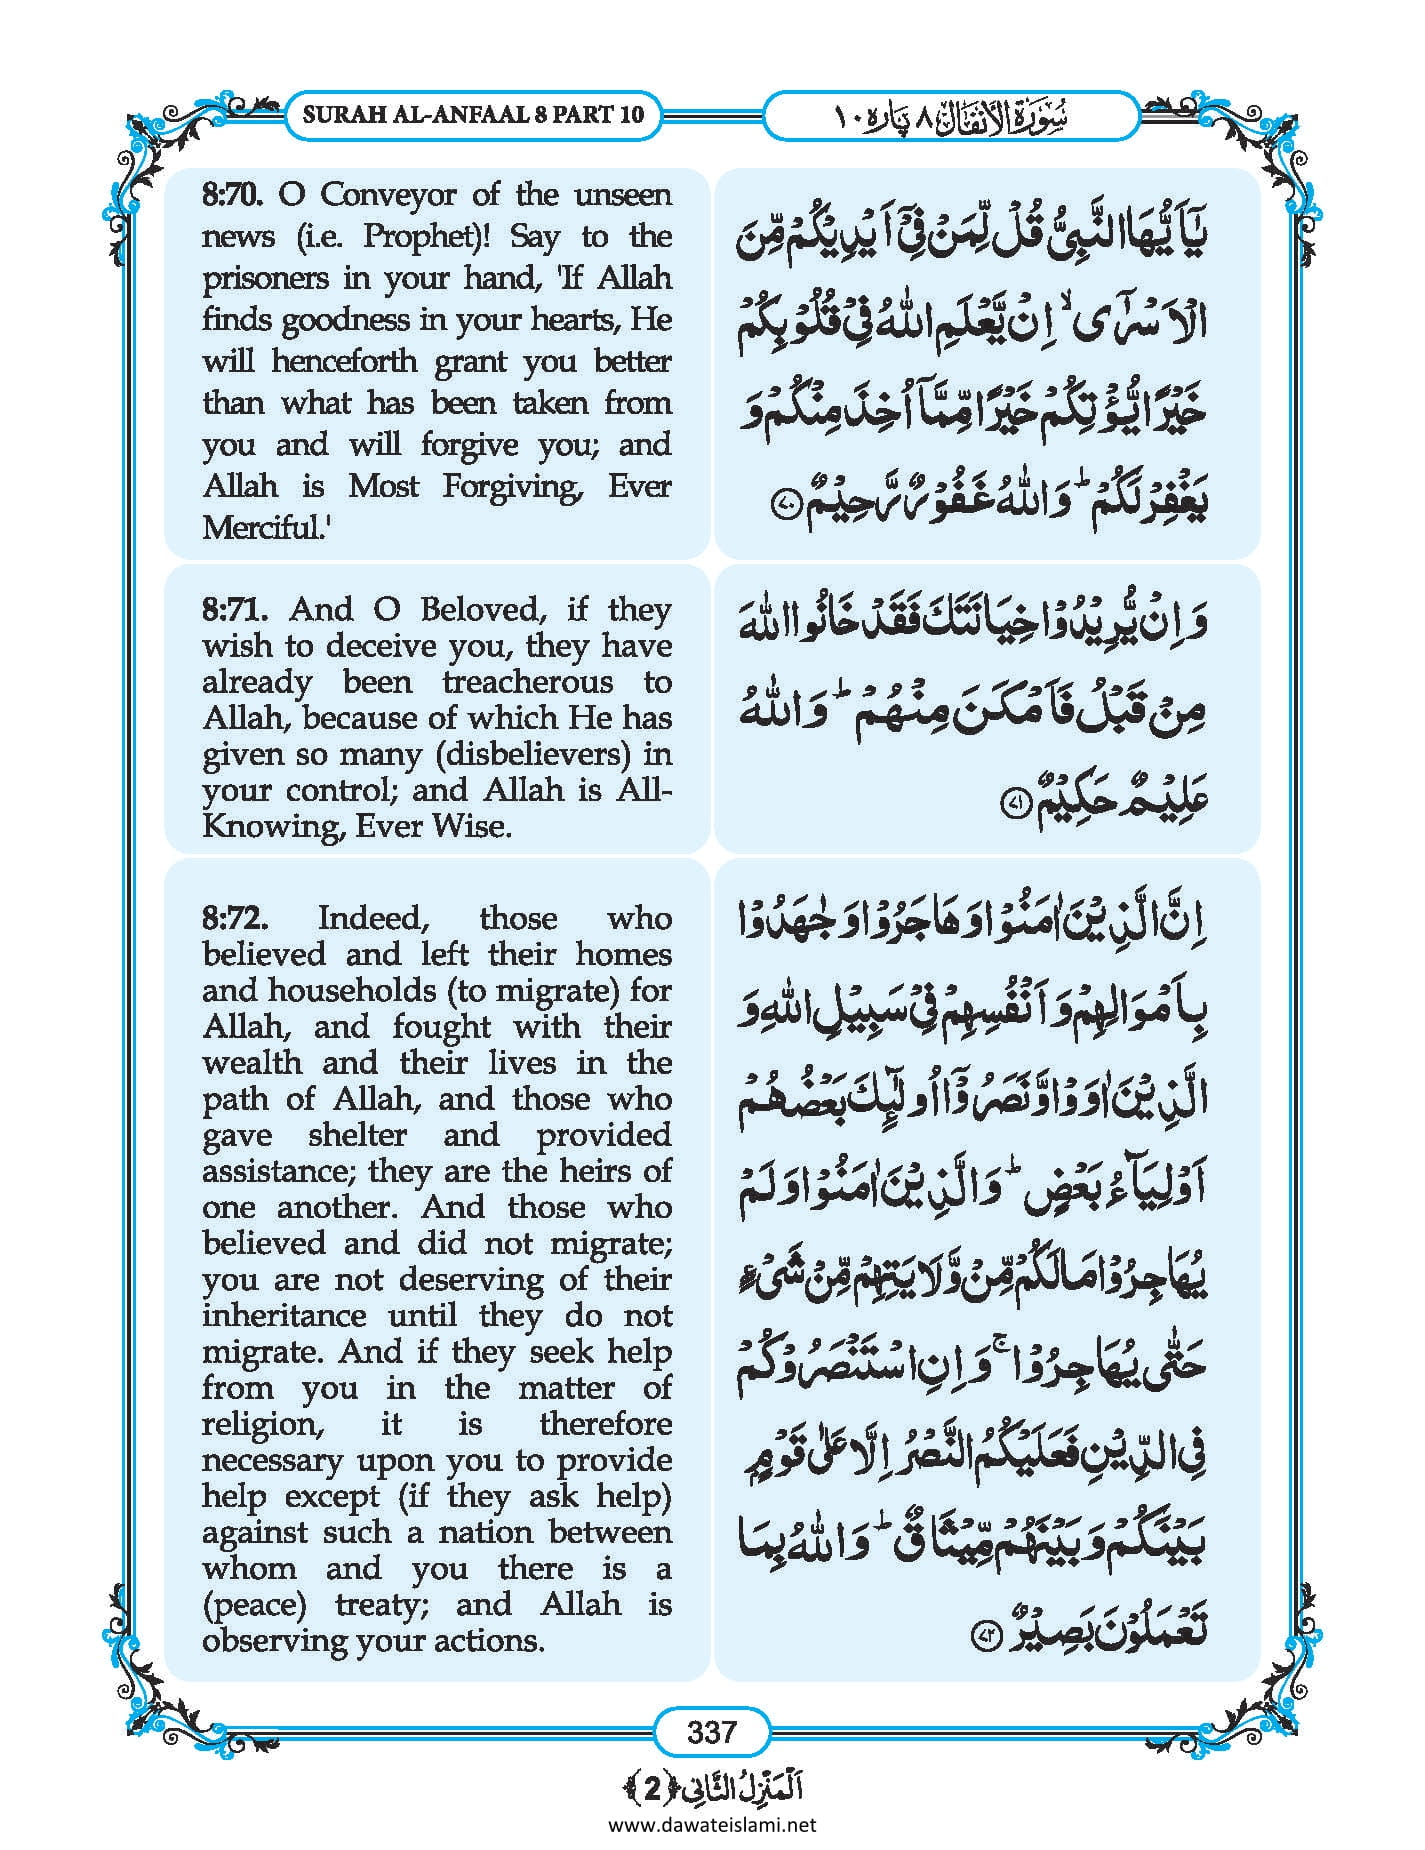 SURAH AL-ANFAAL 8 PART 10
سُوْرَةُ الْاَنْفَال ٨ پَارَه ١٠
8:70. O Conveyor of the unseen
news (i.e. Prophet)! Say to the
prisoners in your hand, 'If Allah
finds goodness in your hearts, He
will henceforth grant you better
than what has been taken from
you and will forgive you; and
Allah is Most Forgiving, Ever
Merciful.'
یٰۤاَیُّهَا النَّبِیُّ قُلْ لِّمَنْ فِیْۤ اَیْدِیْكُمْ مِّنَ
الْاَسْرٰۤىۙ اِنْ یَّعْلَمِ اللّٰهُ فِیْ قُلُوْبِكُمْ
خَیْرًا یُّؤْتِكُمْ خَیْرًا مِّمَّاۤ اُخِذَ مِنْكُمْ وَ
یَغْفِرْ لَكُمْؕ وَ اللّٰهُ غَفُوْرٌ رَّحِیْمٌ ﴿۷۰﴾
8:71. And O Beloved, if they
wish to deceive you, they have
already been treacherous to
Allah, because of which He has
given so many (disbelievers) in
your control; and Allah is All-
Knowing, Ever Wise.
وَ اِنْ یُّرِیْدُوْا خِیَانَتَكَ فَقَدْ خَانُوا اللّٰهَ
مِنْ قَبْلُ فَاَمْكَنَ مِنْهُمْؕ وَ اللّٰهُ
عَلِیْمٌ حَكِیْمٌ ﴿۷۱﴾
8:72. Indeed, those who
believed and left their homes
and households (to migrate) for
Allah, and fought with their
wealth and their lives in the
path of Allah, and those who
gave shelter and provided
assistance; they are the heirs of
one another. And those who
believed and did not migrate;
you are not deserving of their
inheritance until they do not
migrate. And if they seek help
from you in the matter of
religion, it is therefore
necessary upon you to provide
help except (if they ask help)
against such a nation between
whom and you there is a
(peace) treaty; and Allah is
observing your actions.
اِنَّ الَّذِیْنَ اٰمَنُوْا وَ هَاجَرُوْا وَ جٰهَدُوْا
بِاَمْوَالِهِمْ وَ اَنْفُسِهِمْ فِیْ سَبِیْلِ اللّٰهِ وَ
الَّذِیْنَ اٰوَوْا وَّ نَصَرُوْۤا اُولٰٓىٕكَ بَعْضُهُمْ
اَوْلِیَآءُ بَعْضٍؕ وَ الَّذِیْنَ اٰمَنُوْا وَ لَمْ
یُهَاجِرُوْا مَا لَكُمْ مِّنْ وَّلَایَتِهِمْ مِّنْ شَیْءٍ
حَتّٰى یُهَاجِرُوْاۚ وَ اِنِ اسْتَنْصَرُوْكُمْ
فِی الدِّیْنِ فَعَلَیْكُمُ النَّصْرُ اِلَّا عَلٰى قَوْمٍۭ
بَیْنَكُمْ وَ بَیْنَهُمْ مِّیْثَاقٌؕ وَ اللّٰهُ بِمَا
تَعْمَلُوْنَ بَصِیْرٌ ﴿۷۲﴾
337
اَلْمَنْزِلُ الثَّانِی ﴿2﴾
www.dawateislami.net